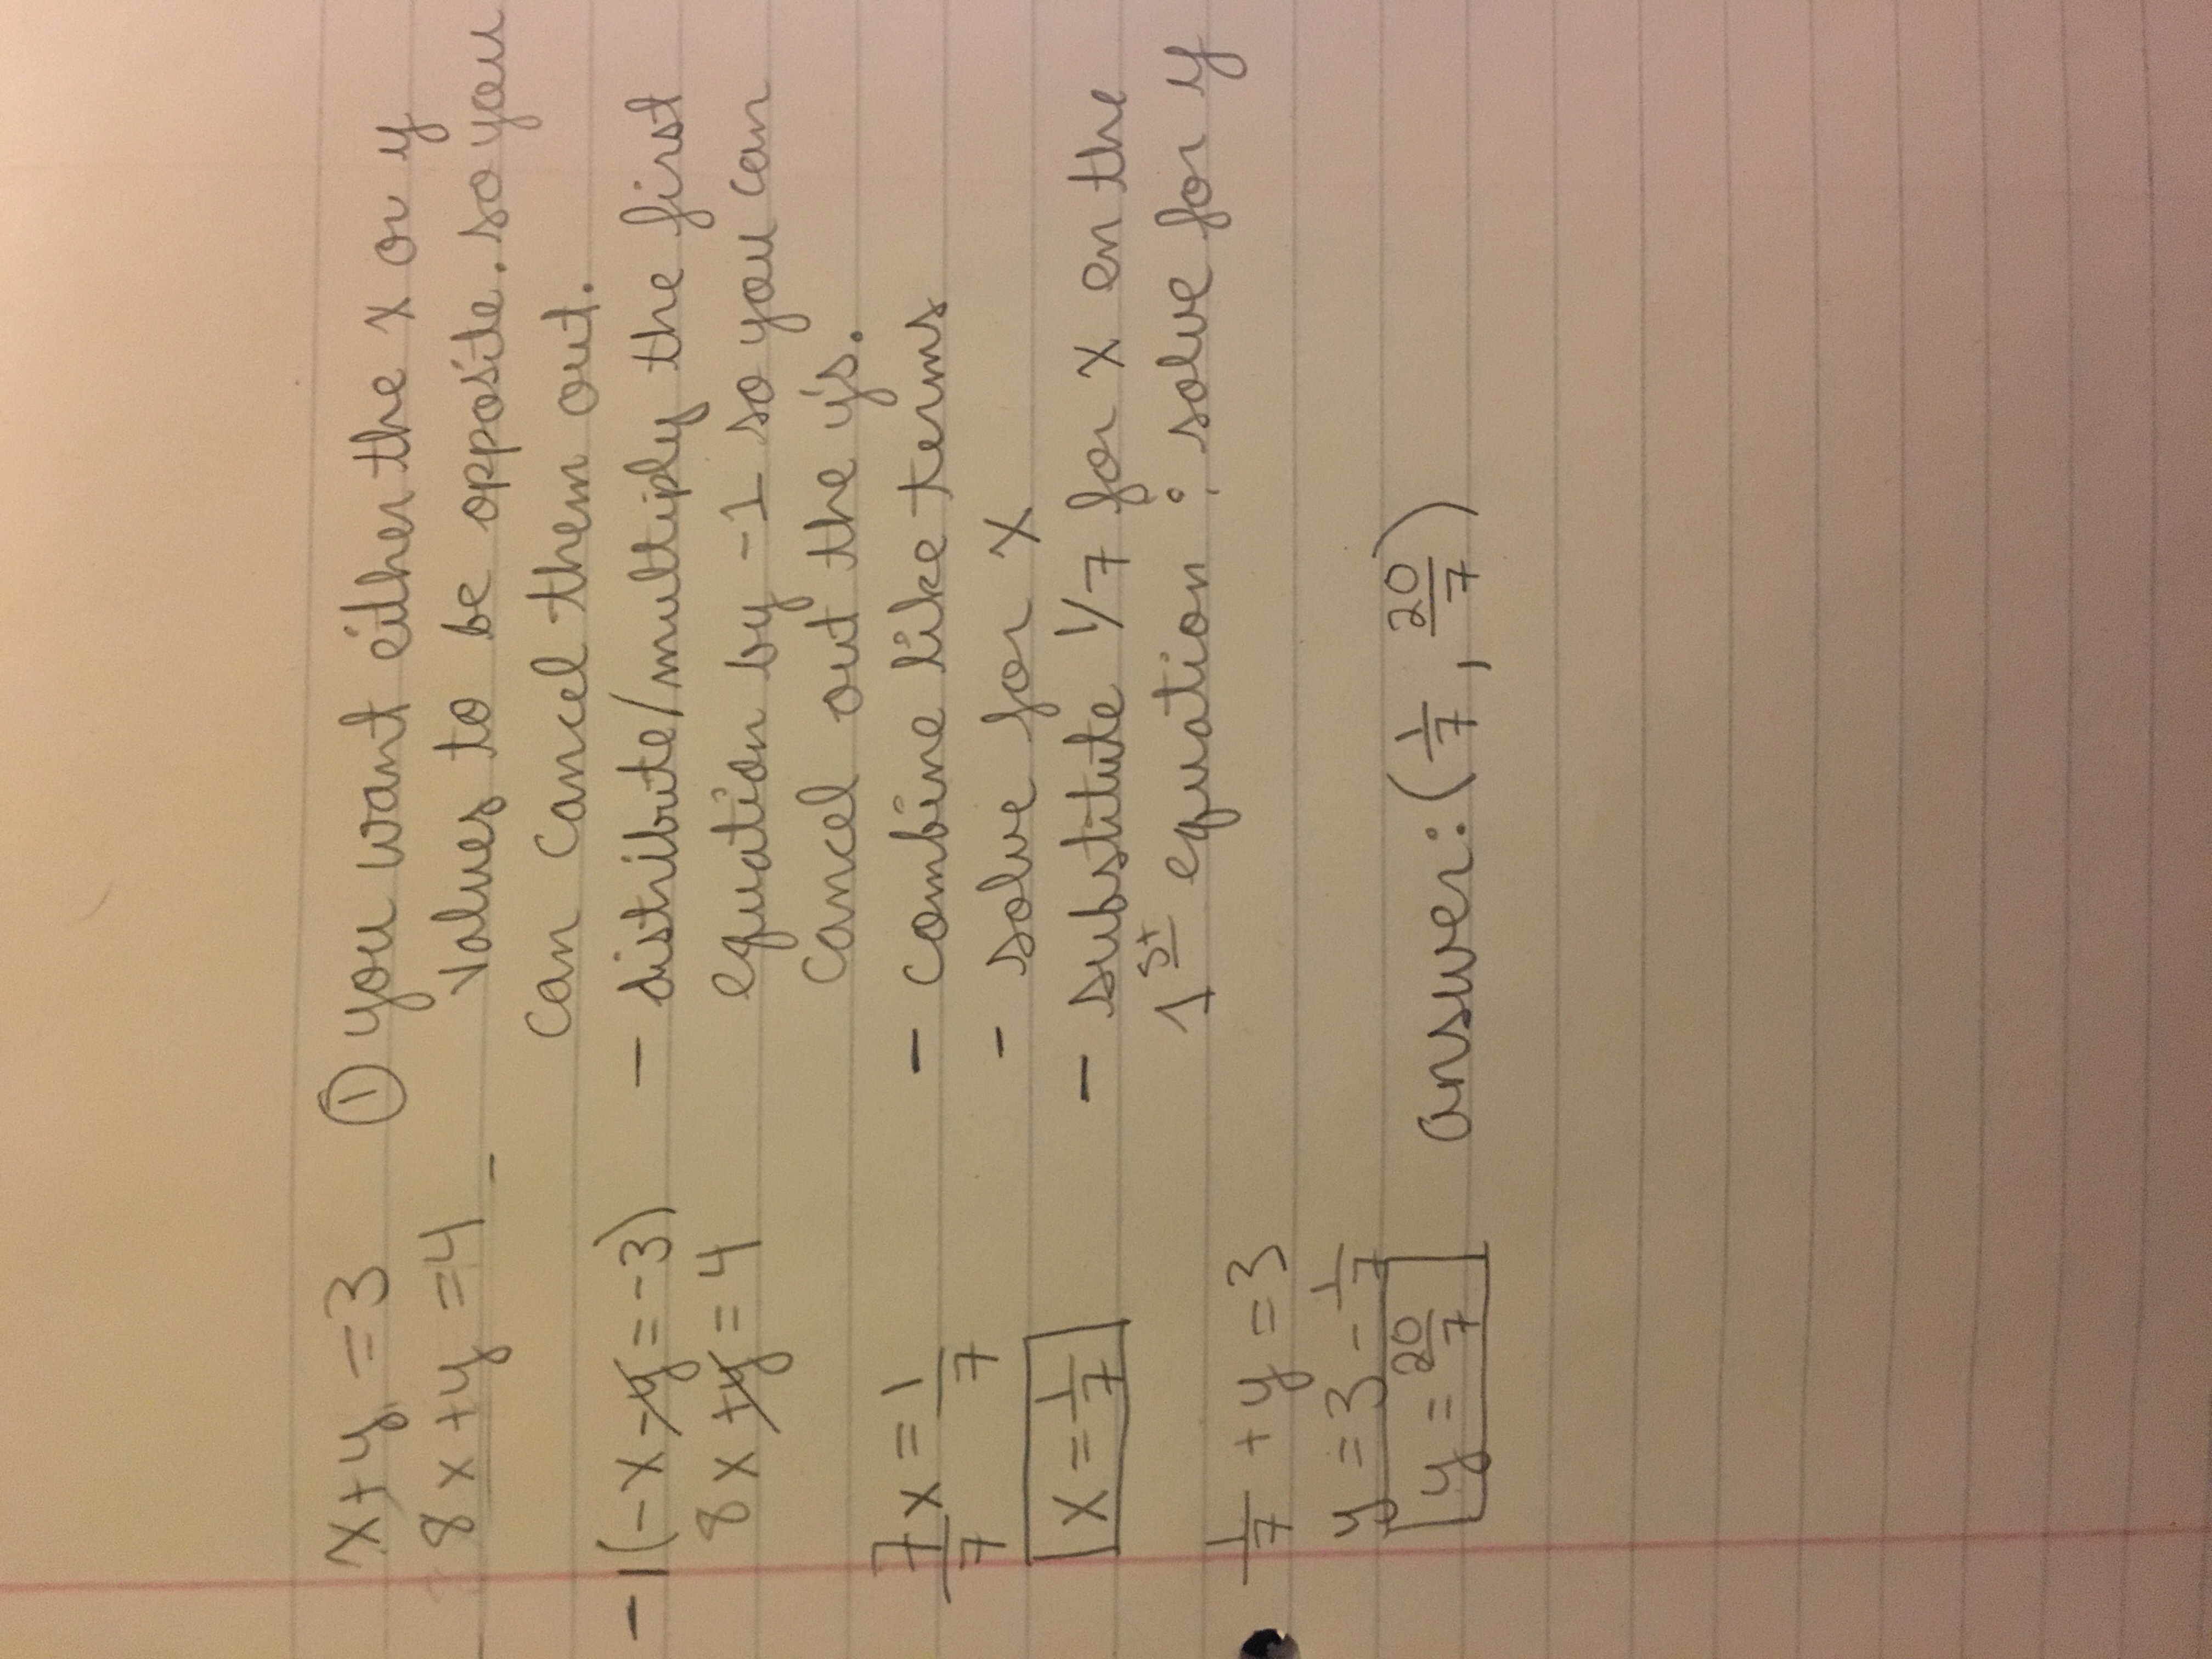 x+y=3 ① you want either the x or y
8x+y=4 values to be opposite. so you
can cancel them out.
-1(-x-y=-3) - distribute/multiply the first
8x+y=4 equation by -1 so you can
cancel out the y's.
7x=1 - combine like terms
7 7 - solve for x
x=1/7 - substitute 1/7 for x en the
1st equation ; solve for y
1/7+y=3
y=3-1/7
y=20/7 answer: (1/7, 20/7)